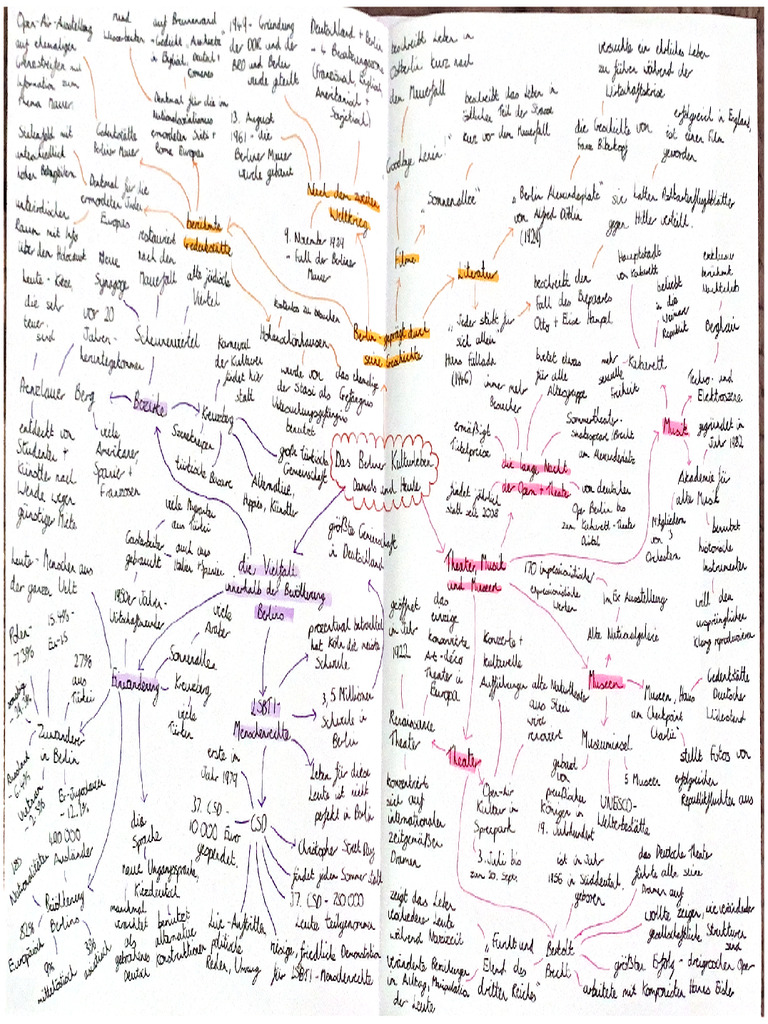 Das Berliner Kulturleben
Damals und Heute
Berlin geprägt durch
seine Geschichte
Nach dem zweiten
Weltkrieg
Deutschland + Berlin
- 4 Besatzungszonen
(Französisch, Englisch,
Amerikanisch +
Sowjetisch)
1949 - Gründung
der DDR und der
BRD und Berlin
wurde geteilt
13. August
1961 - die
Berliner Mauer
wurde gebaut
9. November 1989
- Fall der Berliner
Mauer
berühmte
Gedenkstätte
Gedenkstätte
Berliner Mauer
Open-Air-Ausstellung
auf ehemaligen
Grenzstreifen mit
Information zum
Thema Mauer
Denkmal für die im
Nationalsozialismus
ermordeten Sinti +
Roma Europas
rund
auf Brunnenrand
- Gedicht "Auschwitz"
in Englisch, Deutsch +
Romanes
Denkmal für die
ermordeten Juden
Europas
Stelenfeld mit
unterschiedlich
hohen Betonpfeilern
unterirdischer
Raum mit Info
über den Holocaust
Hohenschönhausen
kostenlos zu besuchen
das ehemalige
Gefängnis
wurde von
der Stasi als
Untersuchungsgefängnis
benutzt
Filme
"Goodbye Lenin!"
beschreibt Leben in
Ostberlin kurz nach
den Mauerfall
"Sonnenallee"
beschreibt das Leben in
östlicher Teil der Strasse
kurz vor den Mauerfall
Literatur
"Berlin Alexanderplatz"
von Alfred Döblin
(1929)
die Geschichte von
Franz Biberkopf
versuchte ein ehrliches Leben
zu führen während der
Wirtschaftskrise
"Jeder stirbt für
sich allein
Hans Fallada
(1946)
beschreibt den
Fall des Ehepaares
Otto + Elise Hampel
sie hatten Postkartenflugblätter
gegen Hitler verteilt.
erfolgreich in England,
ist einen Film
geworden
Theater, Musik
und Museen
die lange Nacht
der Oper + Theater
ermäßigt
Ticketpreise
findet jährlich
statt seit 2008
immer mehr
Besucher
bietet etwas
für alle
Altersgruppe
Sommertheater-
Shakespeare, Brecht
am Alexanderplatz
von deutschen
Oper Berlin bis
zum Kabarett-Theater
Distel
Musik
Kabarett
Hauptstadt
von Kabarett
beliebt
in die
Weimarer
Republik
mehr
sexuelle
Freiheit
Techno- und
Elektroszene
Berghain
exklusive
berühmte
Nachtclubs
Akademie für
alte Musik
gegründet in
Jahr 1982
Mitglieder
von 3
Orchestern
benutzt
historische
Instrumenten
will den
ursprünglichen
Klang reproduzieren
Museen
Alte Nationalgalerie
170 impressionistische
expressionistische
Werken
in Ex Ausstellung
Museum, Haus
am Checkpoint
Charlie
Gedenkstätte
Deutscher
Widerstand
stellt Fotos von
erfolgreicher
Republikfluchten aus
Museumsinsel
5 Museen
UNESCO-
Welterbestätte
gebaut
von
preußischen
Königen in
19. Jahrhundert
Theater
Renaissance
Theater
eröffnet
in Jahr
1922
das
einzige
konservierte
Art-Déco
Theater in
Europa
konzentriert
sich auf
internationalen
zeitgemäßen
Dramen
Open-Air
Kultur in
Spreepark
Konzerte +
kulturelle
Aufführungen
alte Naturtheater
aus Stein
wird
renoviert
3. Juli bis
zum 20. Sept.
Bertolt
Brecht
ist in Jahr
1956 in Süddeutschl.
geboren
das Deutsche Theater
führte alle seine
Dramen auf
wollte zeigen, wie veränderbar
gesellschaftliche Strukturen
sind
größter Erfolg - dreigroschen Oper
arbeitete mit Komponisten Hanns Eisler
"Furcht und
Elend des
dritten Reiches"
zeigt das Leben
verschiedener Leute
während Nazizeit
veränderte Beziehungen
in Alltag, Manipulation
der Leute
die Vielfalt
innerhalb der Bevölkerung
Berlins
Bezirke
Scheunenviertel
restauriert
nach den
Mauerfall
alte jüdische
Viertel
Neue
Synagoge
vor 20
Jahren -
heruntergekommen
Prenzlauer Berg
heute - Kieze,
die sehr
teuer
sind
entdeckt von
Studenten +
Künstler nach
Wende wegen
günstiger Miete
viele
Amerikaner
Spanier +
Franzosen
Kreuzberg
Karneval
der Kulturen
findet hier
statt
Szenekneipen
türkische Basare
Alternative,
Hippies, Künstler
große türkische
Gemeinschaft
Einwanderung
1950er Jahren -
Wirtschaftswunder
Gastarbeiter
gebraucht
viele Migranten
aus Türkei
auch aus
Italien + Spanien
Sonnenallee
viele
Araber
Kreuzberg
viele
Türken
heute - Menschen aus
der ganzen Welt
Zuwanderer
in Berlin
Polen -
7.38%
15.44% -
Ex-US
27%
aus
Türkei
Russland
Vietnam
Ex-Jugoslawen
- 12.1%
Bevölkerung
Berlins
400.000
Ausländer
Nationalitäten
82%
Europäisch
9%
mittelöstlich
3%
asiatisch
die
Sprache
neue Umgangssprache,
Kiezdeutsch
manchmal
als
gebrochenes
Deutsch
benutzt
alternative
Konstruktionen
LSBTI-
Menschenrechte
größte Gemeinschaft
in Deutschland
prozentual betrachtet
hat Köln die meiste
Schwule
3,5 Millionen
Schwule in
Berlin
Leben für diese
Leute ist nicht
perfekt in Berlin
CSD
erste in
Jahr 1979
37. CSD -
10.000 Euro
gespendet
Christopher Street Day
findet jeden Sommer statt
37. CSD - 200.000
Leute teilgenommen
riesige, friedliche Demonstration
für LSBTI-Menschenrechte
Live-Auftritte
politische
Reden, Umzug